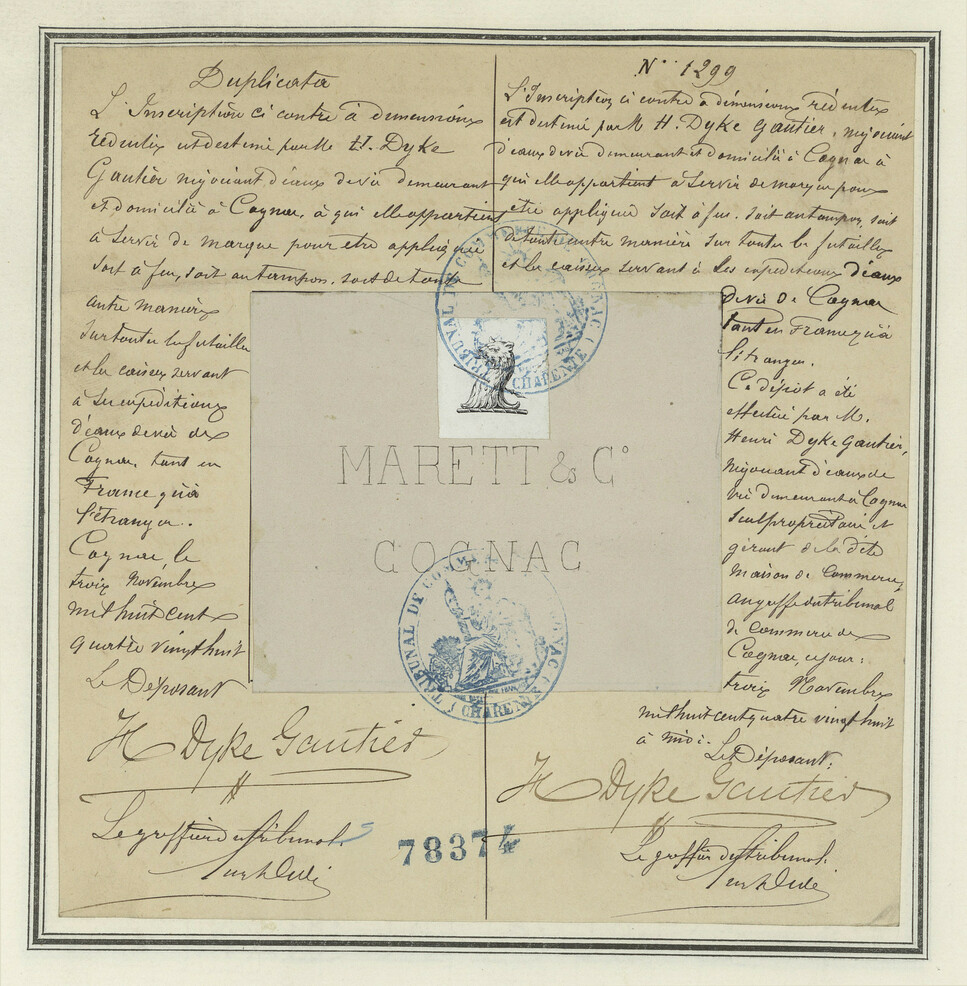 Duplicata
L'Inscription ci contre à dimensions
réduites est destinée par Mr H. Dyke
Gautier négociant d'eaux de vie demeurant
et domicilié à Cognac, à qui elle appartient
à servir de marque pour être appliquée
soit à feu, soit au tampon, soit de toute
autre manière
sur toutes les futailles
et les caisses servant
à ses expéditions
d'eaux de vie de
Cognac, tant en
France qu'à
l'étranger.
Cognac, le
trois Novembre
mil huit cent
quatre vingt huit
Le Déposant
H Dyke Gautier
Le greffier du tribunal
N° 1299
L'Inscription ci contre à dimensions réduites
est destinée par M H. Dyke Gautier, négociant
d'eaux de vie demeurant et domicilié à Cognac à
qui elle appartient à servir de marque pour
être appliquée soit à feu, soit au tampon, soit
de toute autre manière sur toutes les futailles
et les caisses servant à ses expéditions d'eaux
de vie de Cognac
tant en France qu'à
l'étranger.
Ce dépôt a été
effectué par M.
Henri Dyke Gautier,
négociant d'eaux de
vie demeurant à Cognac
seul propriétaire et
gérant de la dite
maison de commerce,
au greffe du tribunal
de commerce de
Cognac, ce jour:
trois Novembre
mil huit cent quatre vingt huit
à midi.
Le Déposant:
H Dyke Gautier
Le greffier du tribunal.
MARETT & C°
COGNAC
TRIBUNAL DE COMMERCE COGNAC (CHARENTE)
TRIBUNAL DE COMMERCE COGNAC (CHARENTE)
78374